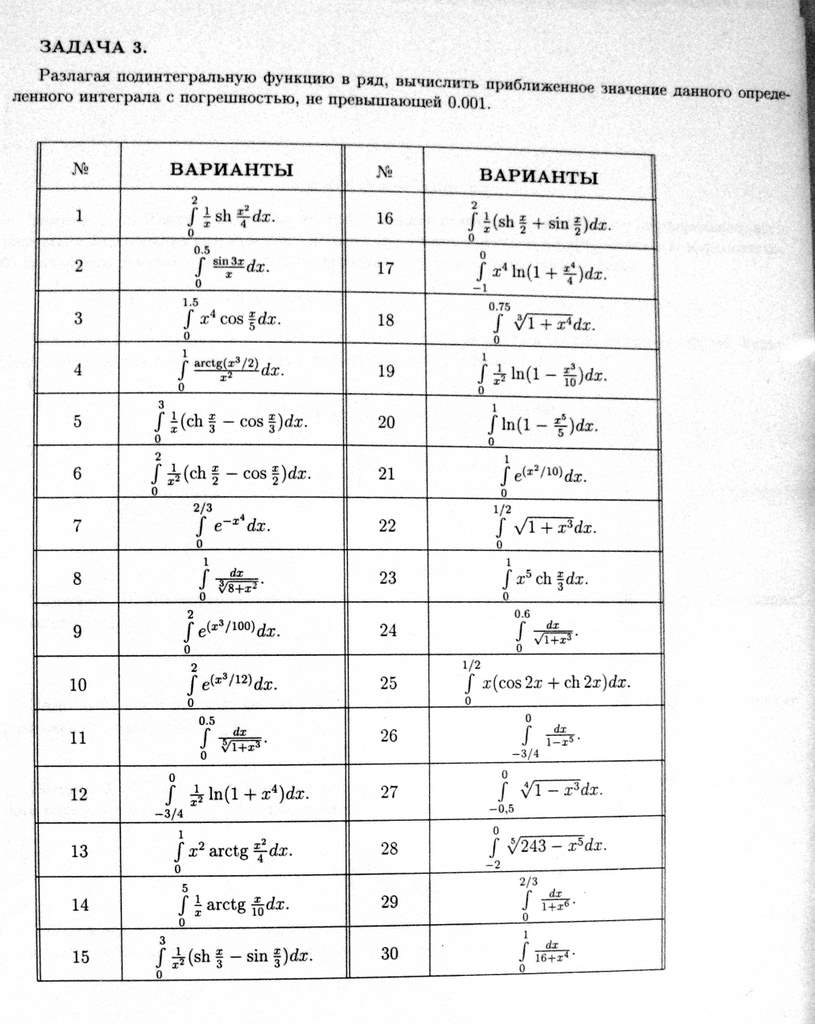 ЗАДАЧА 3.
Разлагая подинтегральную функцию в ряд, вычислить приближенное значение данного опреде-
ленного интеграла с погрешностью, не превышающей 0.001.
№ ВАРИАНТЫ № ВАРИАНТЫ
1 ∫₀² 1/x sh x²/4 dx. 16 ∫₀² 1/x (sh x/2 + sin x/2)dx.
2 ∫₀^0.5 sin 3x/x dx. 17 ∫₋₁⁰ x⁴ ln(1 + x⁴/4)dx.
3 ∫₀^1.5 x⁴ cos x/5 dx. 18 ∫₀^0.75 ∛(1 + x⁴)dx.
4 ∫₀¹ arctg(x³/2)/x² dx. 19 ∫₀¹ 1/x² ln(1 − x³/10)dx.
5 ∫₀³ 1/x (ch x/3 − cos x/3)dx. 20 ∫₀¹ ln(1 − x⁵/5)dx.
6 ∫₀² 1/x² (ch x/2 − cos x/2)dx. 21 ∫₀¹ e^(x²/10)dx.
7 ∫₀^2/3 e^−x⁴ dx. 22 ∫₀^1/2 √(1 + x³)dx.
8 ∫₀¹ dx/∛(8+x²). 23 ∫₀¹ x⁵ ch x/3 dx.
9 ∫₀² e^(x³/100)dx. 24 ∫₀^0.6 dx/√(1+x³).
10 ∫₀² e^(x³/12)dx. 25 ∫₀^1/2 x(cos 2x + ch 2x)dx.
11 ∫₀^0.5 dx/⁵√(1+x³). 26 ∫₋₃/₄⁰ dx/(1−x⁵).
12 ∫₋₃/₄⁰ 1/x² ln(1 + x⁴)dx. 27 ∫₋₀,₅⁰ ∜(1 − x³)dx.
13 ∫₀¹ x² arctg x²/4 dx. 28 ∫₋₂⁰ ⁵√(243 − x⁵)dx.
14 ∫₀⁵ 1/x arctg x/10 dx. 29 ∫₀^2/3 dx/(1+x⁶).
15 ∫₀³ 1/x² (sh x/3 − sin x/3)dx. 30 ∫₀¹ dx/(16+x⁴).